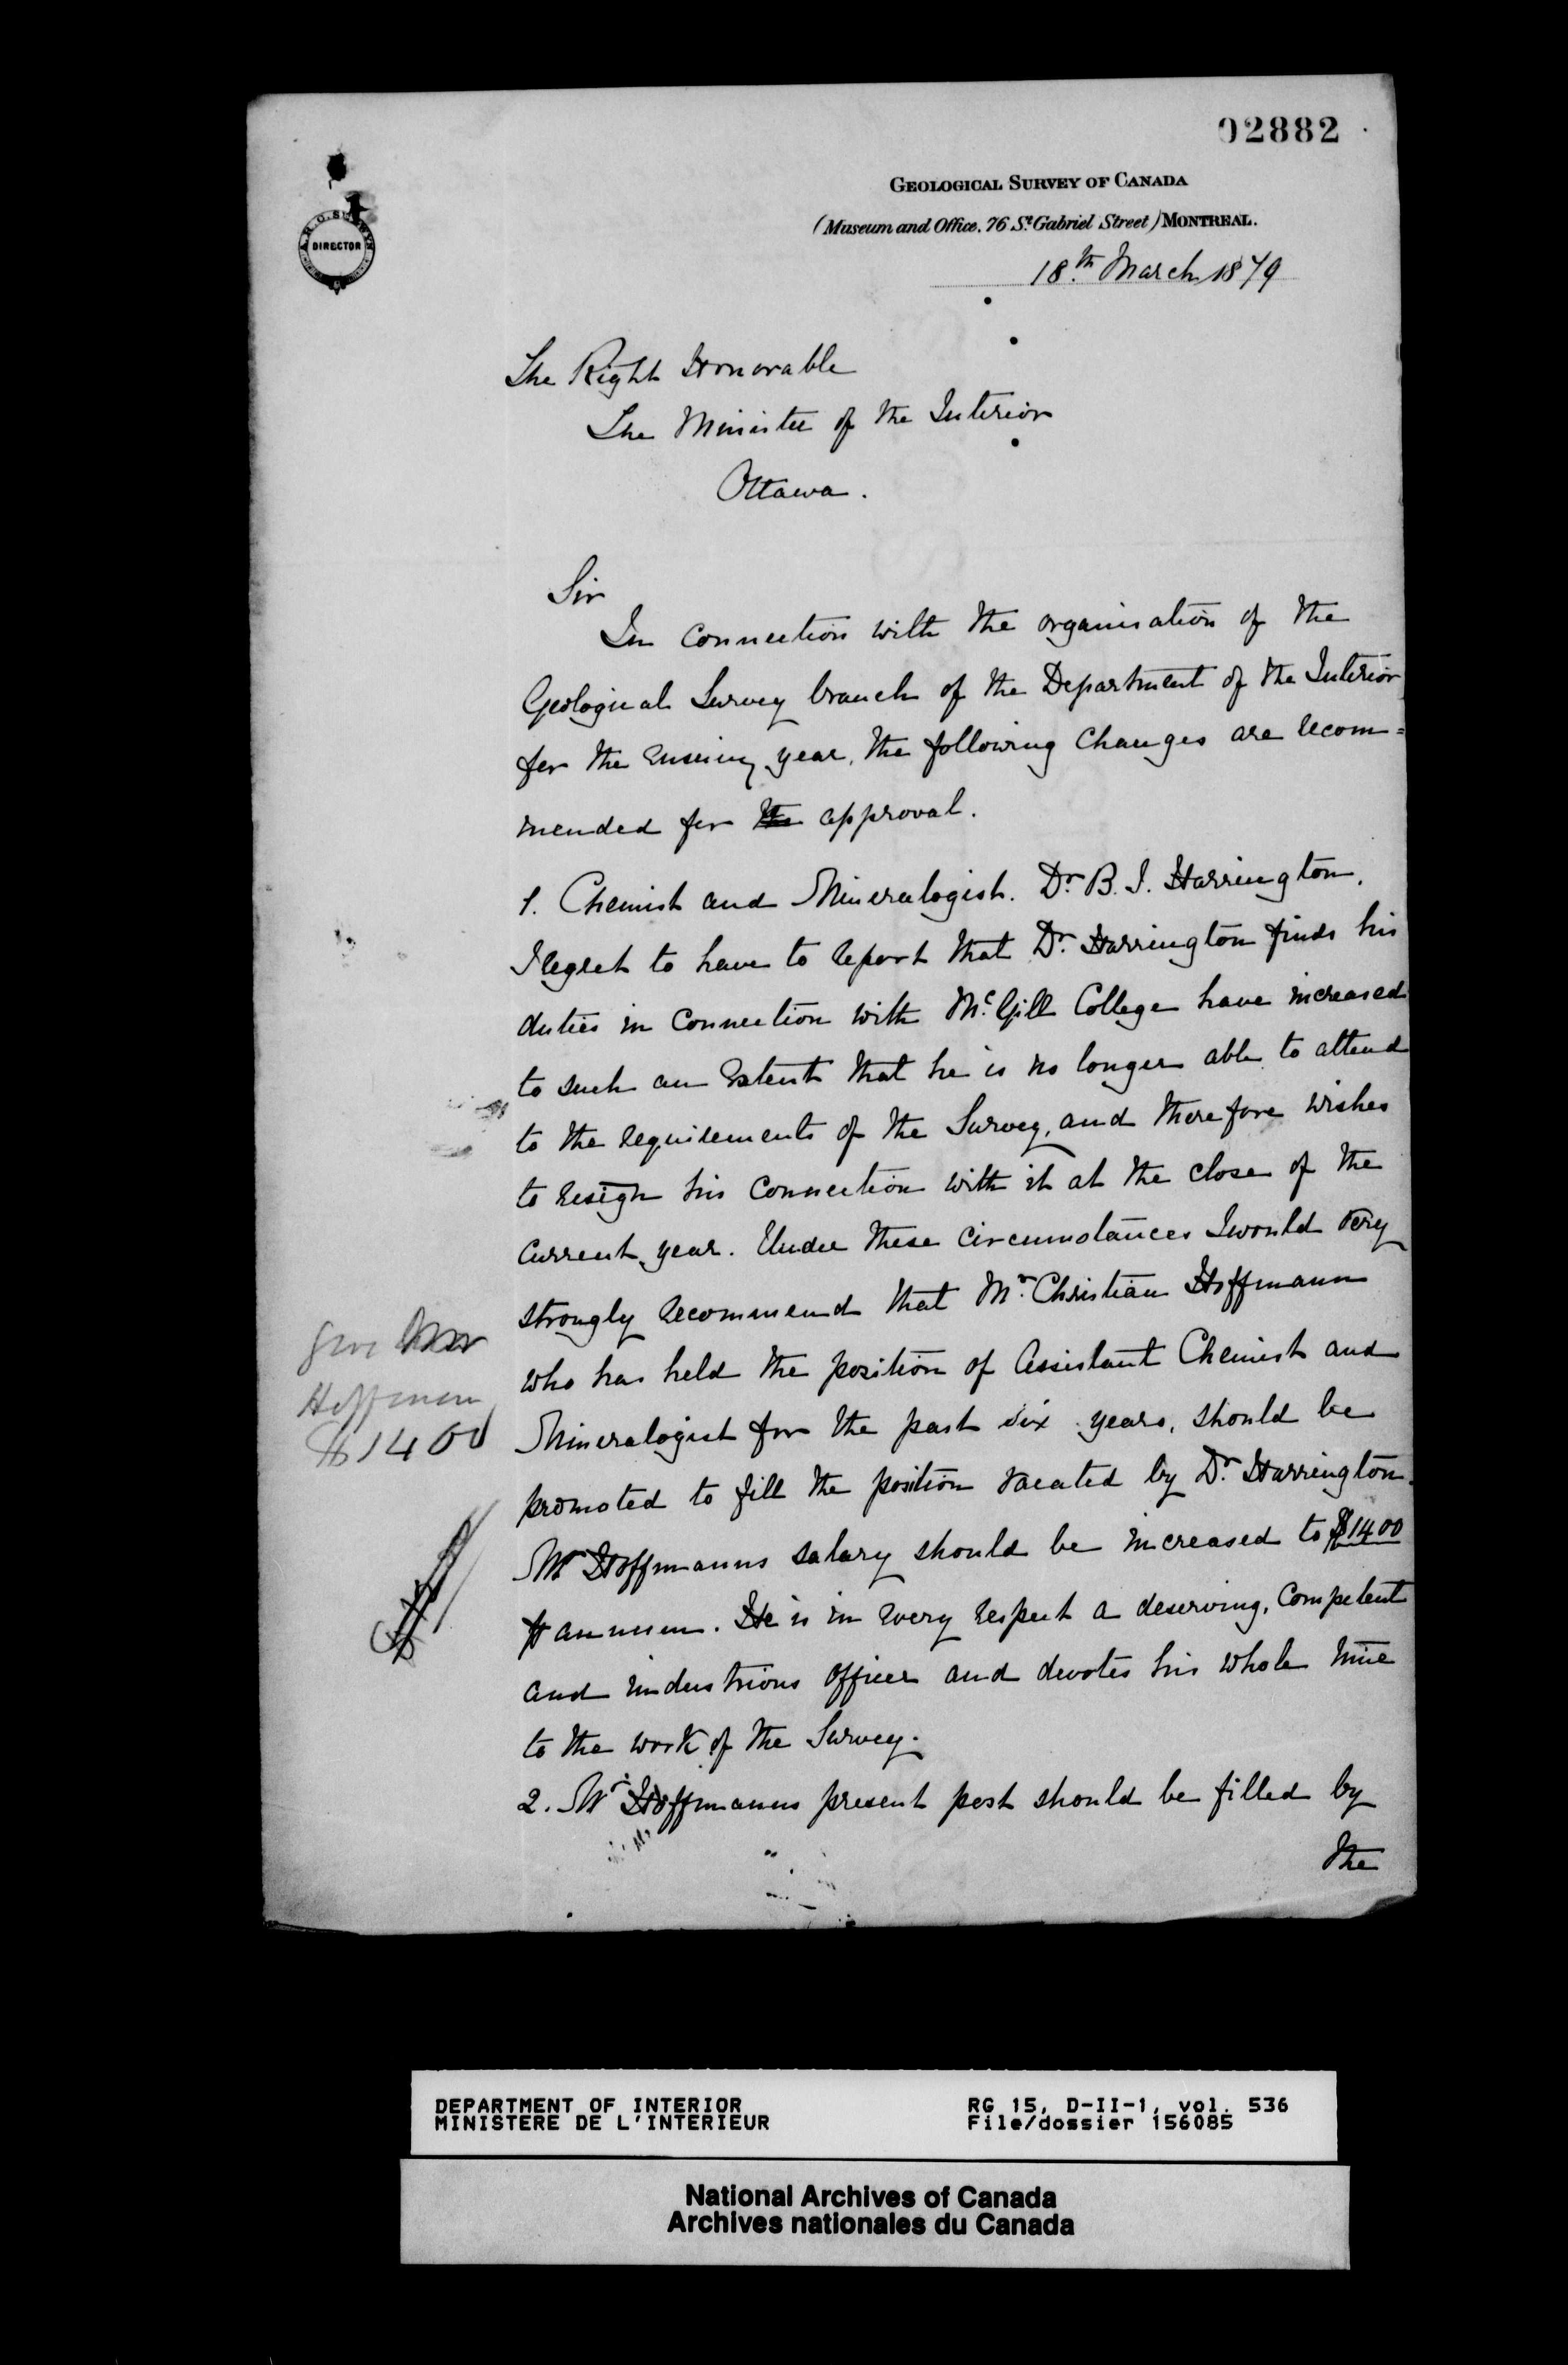 02882
GEOLOGICAL SURVEY OF CANADA
(Museum and Office, 76 St. Gabriel Street) MONTREAL.
DIRECTOR
18th March 1879
The Right Honorable
The Minister of the Interior
Ottawa.
Sir
In connection with the organisation of the
Geological Survey branch of the Department of the Interior
for the ensuing year, the following changes are recom=
mended for the approval.
1. Chemist and Mineralogist. Dr. B. J. Harrington.
I regret to have to report that Dr. Harrington finds his
duties in connection with McGill College have increased
to such an extent that he is no longer able to attend
to the requirements of the Survey, and therefore wishes
to resign his connection with it at the close of the
current year. Under these circumstances I would very
strongly recommend that Mr. Christian Hoffmann
who has held the position of Assistant Chemist and
Mineralogist for the past six years, should be
promoted to fill the position vacated by Dr. Harrington.
Mr Hoffmanns salary should be increased to $1400
⅌ annum. He is in every respect a deserving, competent
and industrious officer and devotes his whole time
to the work of the Survey.
2. Mr. Hoffmanns present post should be filled by
the
Give
Hoffman
$1400
DEPARTMENT OF INTERIOR
MINISTERE DE L'INTERIEUR
RG 15, D-II-1, vol. 536
File/dossier 156085
National Archives of Canada
Archives nationales du Canada